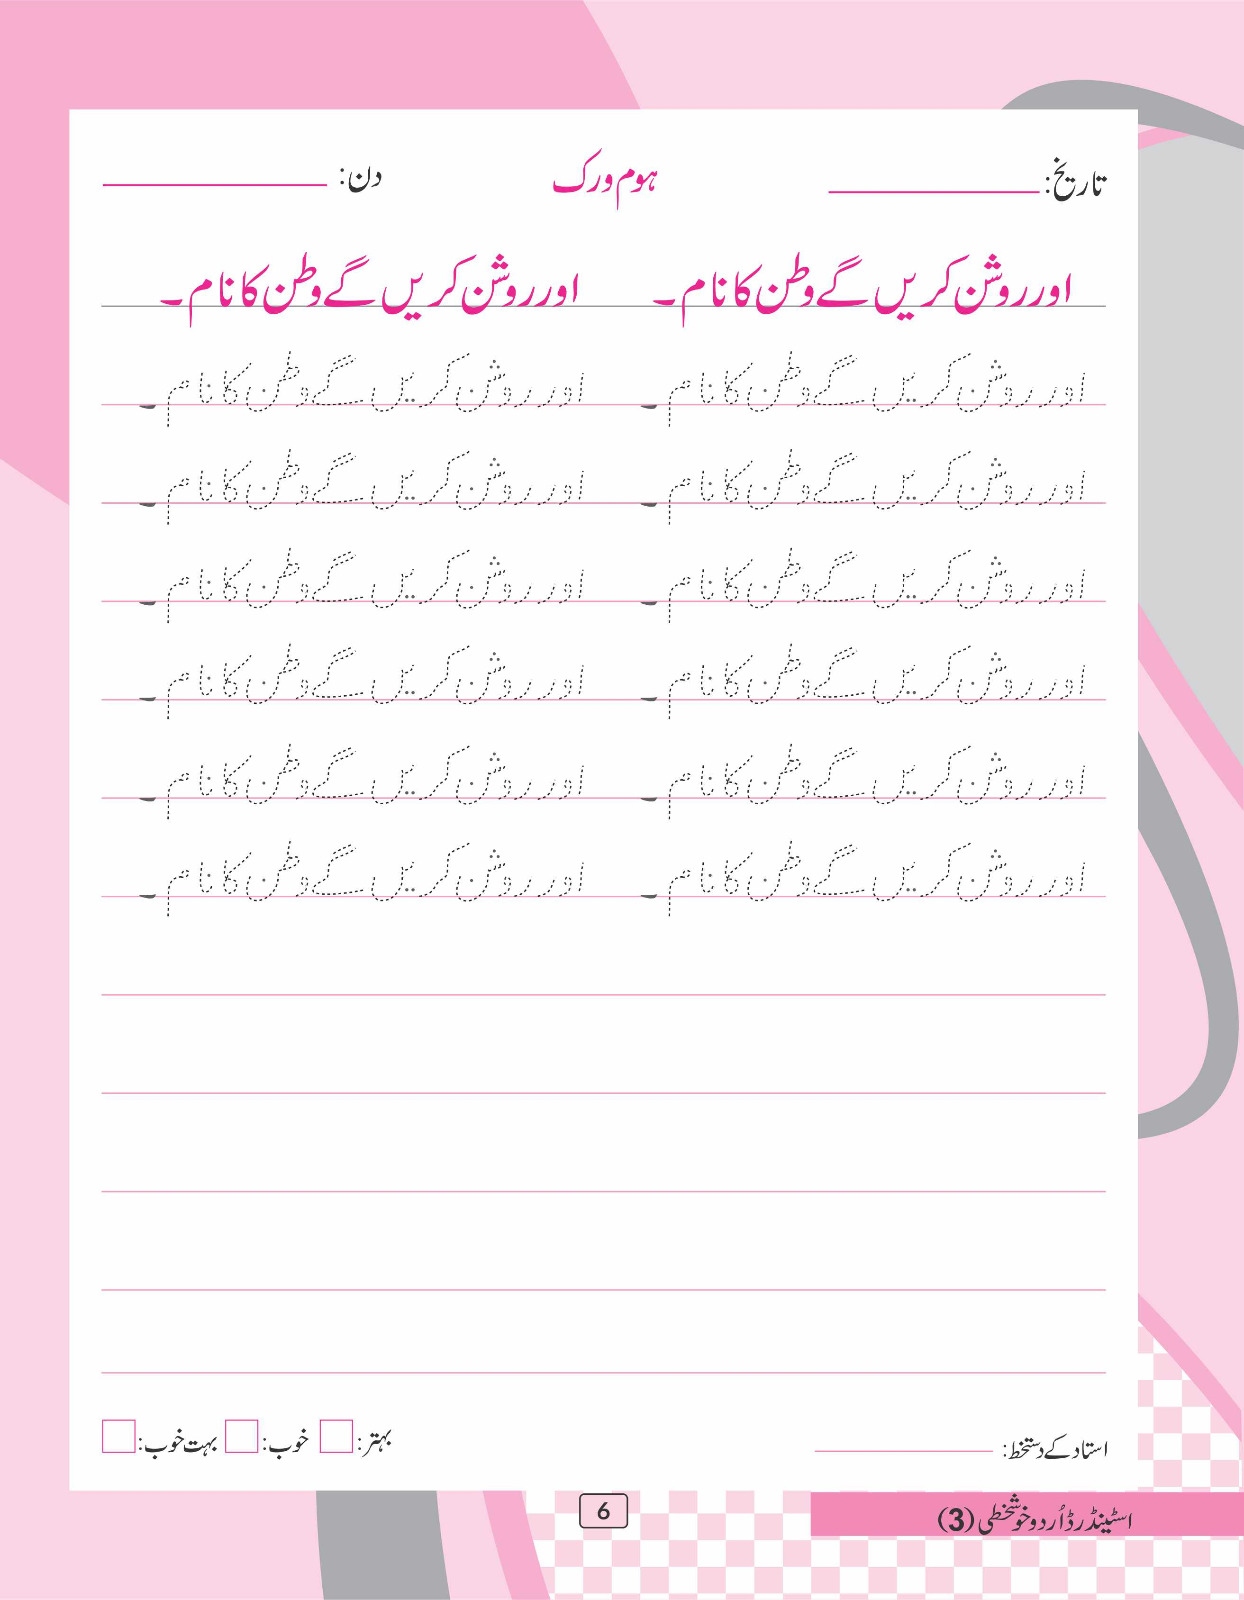 تاریخ: ہوم ورک دن:
اور روشن کریں گے وطن کا نام۔ اور روشن کریں گے وطن کا نام۔
اور روشن کریں گے وطن کا نام۔ اور روشن کریں گے وطن کا نام۔
اور روشن کریں گے وطن کا نام۔ اور روشن کریں گے وطن کا نام۔
اور روشن کریں گے وطن کا نام۔ اور روشن کریں گے وطن کا نام۔
اور روشن کریں گے وطن کا نام۔ اور روشن کریں گے وطن کا نام۔
اور روشن کریں گے وطن کا نام۔ اور روشن کریں گے وطن کا نام۔
اور روشن کریں گے وطن کا نام۔ اور روشن کریں گے وطن کا نام۔
استاد کے دستخط: بہتر: خوب: بہت خوب:
اسٹینڈرڈ اُردو خوشخطی (3) 6